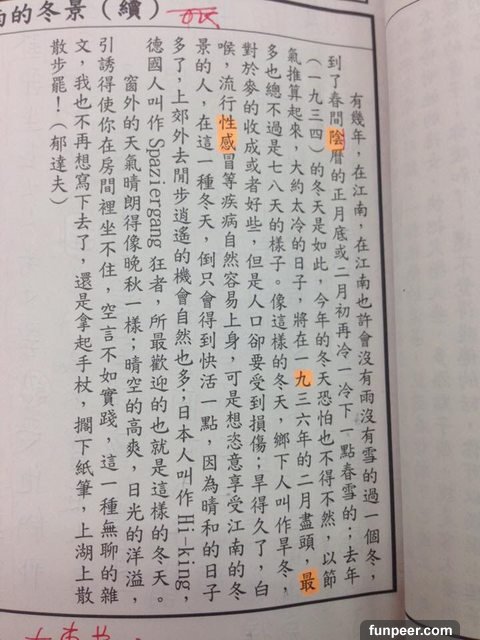 雨的冬景（續）
有幾年，在江南，在江南也許會沒有雨沒有雪的過一個冬，
到了春間陰曆的正月底或二月初再冷一冷下一點春雪的；去年
（一九三四）的冬天是如此，今年的冬天恐怕也不得不然，以節
氣推算起來，大約太冷的日子，將在一九三六年的二月盡頭，最
多也總不過是七八天的樣子。像這樣的冬天，鄉下人叫作旱冬，
對於麥的收成或者好些，但是人口卻要受到損傷；旱得久了，白
喉，流行性感冒等疾病自然容易上身，可是想恣意享受江南的冬
景的人，在這一種冬天，倒只會得到快活一點，因為晴和的日子
多了，上郊外去閒步逍遙的機會自然也多；日本人叫作 Hi-king，
德國人叫作 Spaziergang 狂者，所最歡迎的也就是這樣的冬天。
窗外的天氣晴朗得像晚秋一樣；晴空的高爽，日光的洋溢，
引誘得使你在房間裡坐不住，空言不如實踐，這一種無聊的雜
文，我也不再想寫下去了，還是拿起手杖，擱下紙筆，上湖上散
散步罷！（郁達夫）
funpeer.com